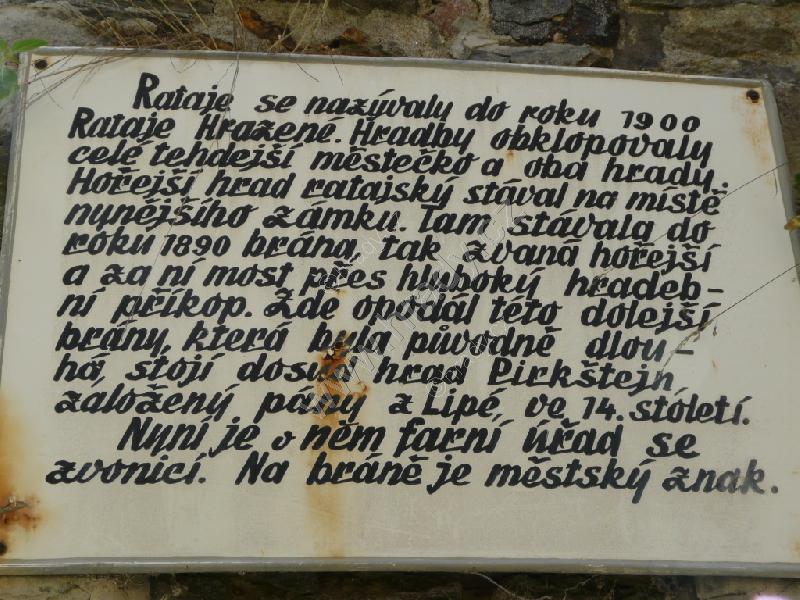 Rataje se nazývaly do roku 1900
Rataje Hrazené. Hradby obklopovaly
celé tehdejší městečko a oba hrady.
Hořejší hrad ratajský stával na místě
nynějšího zámku. Tam stávala do
roku 1890 brána, tak zvaná hořejší
a za ní most přes hluboký hradeb-
ní příkop. Zde opodál této dolejší
brány, která byla původně dlou-
há, stojí dosud hrad Pirkštejn,
založený pány z Lipé, ve 14. století.
Nyní je v něm farní úřad se
zvonicí. Na bráně je městský znak.